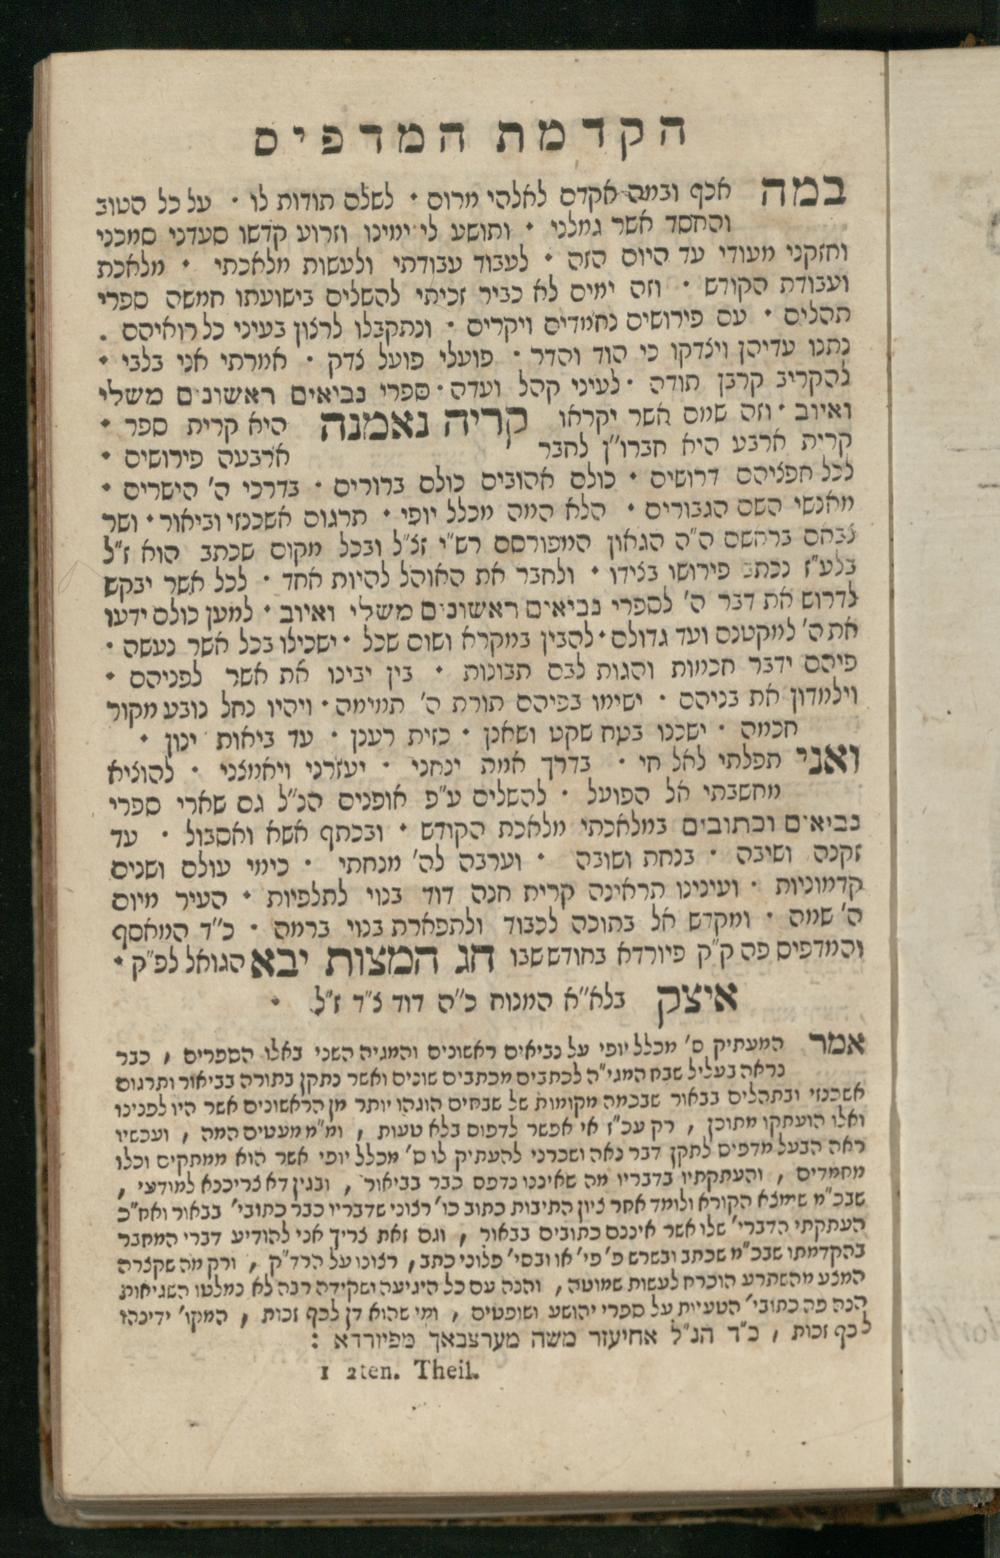 הקדמת המדפיס
במה אכף ובמה אקדם לאלהי מרום · לשלם תודות לו · על כל הטוב
והחסד אשר גמלני · ותושע לי ימינו וזרוע קדשו סעדני סמכני
וחזקני מעודי עד היום הזה · לעבוד עבודתי ולעשות מלאכתי · מלאכת
ועבודת הקודש · וזה ימים לא כביר זכיתי להשלים בישועתו חמשה ספרי
תהלים · עם פירושים נחמדים ויקרים · ונתקבלו לרצון בעיני כל רואיהם .
נתנו עדיהן ויצדקו כי הוד והדר · פועלי פועל צדק · אמרתי אני בלבי ·
להקריב קרבן תודה · לעיני קהל ועדה · ספרי נביאים ראשונים משלי
ואיוב · וזה שמם אשר יקראו קריה נאמנה היא קרית ספר ·
קרית ארבע היא חברו"ן לחבר ארבעה פירושים ·
לכל חפציהם דרושים · כולם אהובים כולם ברורים · בדרכי ה' הישרים ·
מאנשי השם הגבורים · הלא המה מכלל יופי · תרגום אשכנזי וביאור · ושר
צבאם בראשם ה"ה הגאון המפורסם רש"י זצ"ל ובכל מקום שכתב הוא ז"ל
בלע"ז נכתב פירושו בצידו · ולחבר את האוהל להיות אחד · לכל אשר יבקש
לדרוש את דבר ה' לספרי נביאים ראשונים משלי ואיוב · למען כולם ידעו
את ה' למקטנם ועד גדולם · להבין במקרא ושום שכל · ישכילו בכל אשר נעשה ·
פיהם ידבר חכמות והגות לבם תבונות · בין יבינו את אשר לפניהם ·
וילמדון את בניהם · ישימו בפיהם תורת ה' תמימה · ויהיו נחל נובע מקור
חכמה · ישכנו בטח שקט ושאנן · כזית רענן · עד ביאות ינון ·
ואני תפלתי לאל חי · בדרך אמת ינחני · יעזרני ויאמצני · להוציא
מחשבתי אל הפועל · להשלים ע"פ אופנים הנ"ל גם שארי ספרי
נביאים וכתובים במלאכתי מלאכת הקודש · ובכתף אשא ואסבול · עד
זקנה ושיבה · בנחת ושובה · וערבה לה' מנחתי · כימי עולם ושנים
קדמוניות · ועינינו תראינה קרית חנה דוד בנוי לתלפיות · העיר מיום
ה' שמה · ומקדש אל בתוכה לכבוד ולתפארת בנוי ברמה · כ"ד המאסף
והמדפיס פה ק"ק פיורדא בחודש שבו חג המצות יבא הגואל לפ"ק ·
איצק בלא"א המנוח כ"ה דוד צ"ד ז"ל ·
אמר המעתיק ס' מכלל יופי על נביאים ראשונים והמגיה השני באלו הספרים , כבר
נראה בעליל שבח המגי"ה לכתבים מכתבים שונים ואשר נתקן בתורה בביאור ותרגום
אשכנזי ובתהלים בבאור שבכמה מקומות של שבחים הוגהו יותר מן הראשונים אשר היו לפנינו
ואלו הועתקו מתוכן , רק עכ"ז אי אפשר לדפוס בלא טעות , ומ"מ מעטים המה , ועכשיו
ראה הבעל מדפיס לתקן דבר נאה ושכרני להעתיק לו ס' מכלל יופי אשר הוא ממתקים וכלו
מחמדים , והעתקתיו בדבריו מה שאיננו נדפס כבר בביאור , ובגין דא צריכנא למודעי ,
שבכ"מ שימצא הקורא ולומד אחר ציון התיבות כתוב כו' רצוני שדבריו כבר כתובי' בבאור ואח"כ
העתקתי הדברי' שלו אשר אינם כתובים בבאור , וגם זאת צריך אני להודיע דברי המחבר
בהקדמתו שבכ"מ שכתב ובשרש פ' פי' או ובסי' פלוני כתב , רצונו על הרד"ק , ורק מה שקצרה
המצע מהשתרע הוכרח לעשות שמוטה , והנה עם כל היגיעה ושקידה רבה לא נמלטו השגיאות
הנה פה כתובי' הטעיות על ספרי יהושע ושופטים , ומי שהוא דן לכף זכות , המקו' ידינהו
לכף זכות , כ"ד הנ"ל אחיעזר משה מערצבאך מפיורדא :
1 2ten. Theil.